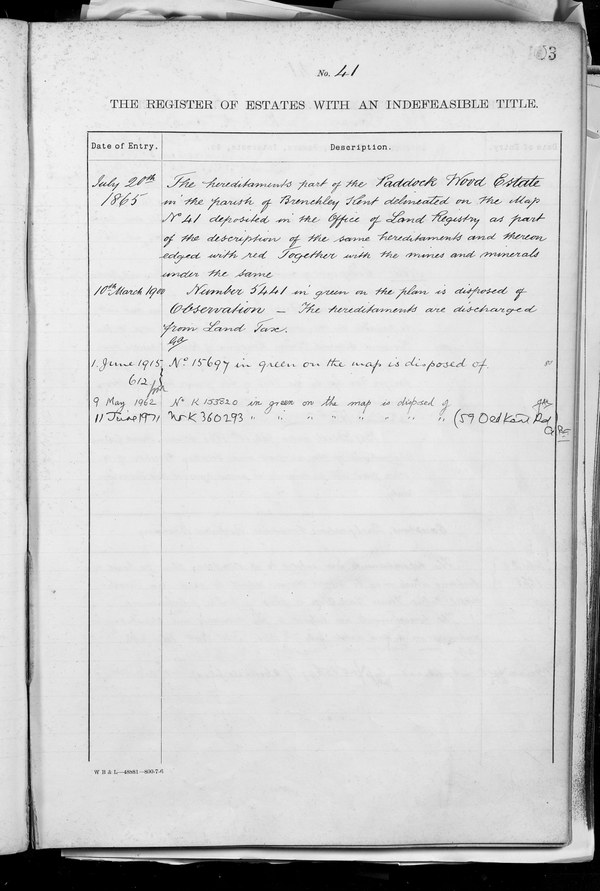 103
No. 41
THE REGISTER OF ESTATES WITH AN INDEFEASIBLE TITLE.
Date of Entry. Description.
July 20th 1865 The hereditaments part of the Paddock Wood Estate
in the parish of Brenchley Kent delineated on the Map
No 41 deposited in the Office of Land Registry as part
of the description of the same hereditaments and thereon
edged with red Together with the mines and minerals
under the same
10th March 1900 Number 5441 in green on the plan is disposed of
Observation — The hereditaments are discharged
from Land Tax.
1 June 1915 No 15697 in green on the map is disposed of
612
9 May 1962 No K 155820 in green on the map is disposed of
11 June 1971 No K 360293 " " " " " " " " (59 Old Kent Rd
W B & L—48881—800-7-6